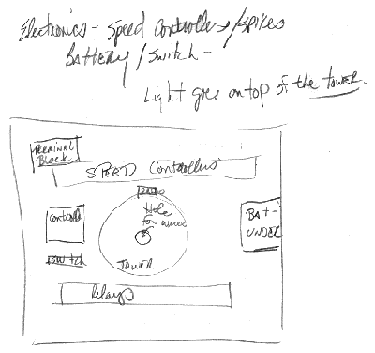 Electronics - Speed Controllers/Spikes
Battery/Switch -
Light goes on top of the tower
Terminal
Block
SPEED Controllers
Hole
Controller
BAT-
UNDER
Switch
Tower
Relays